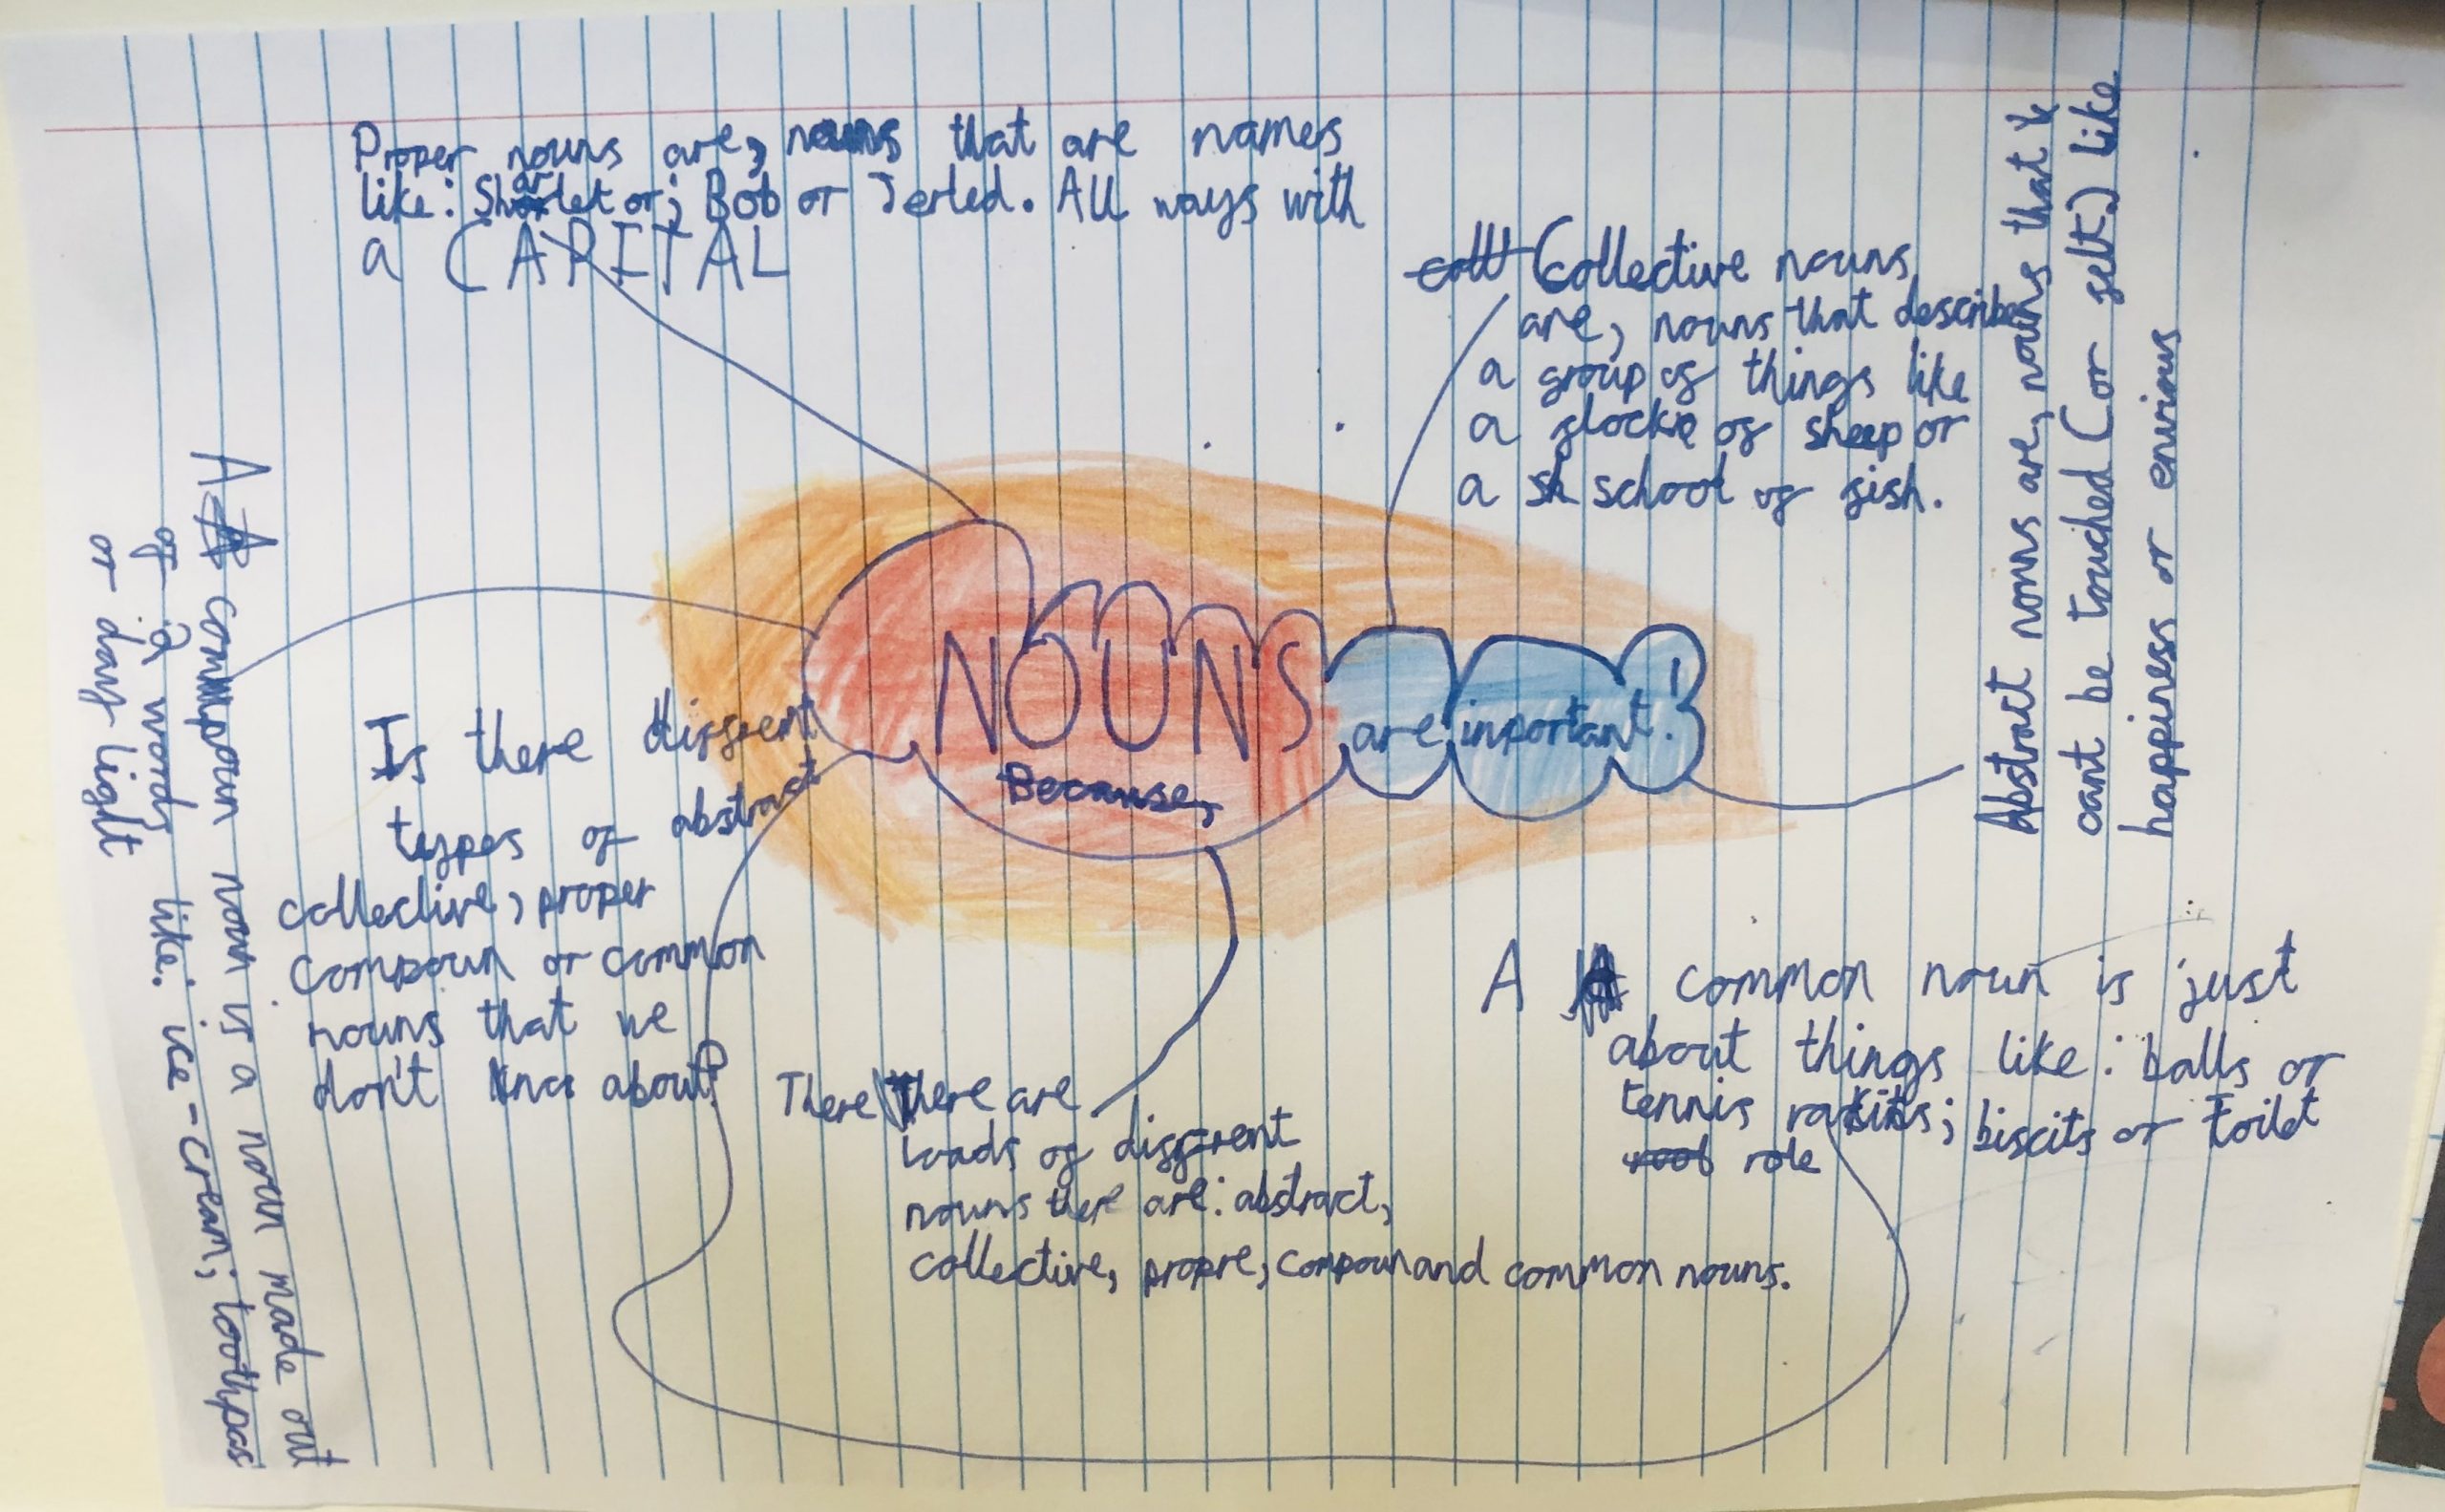 Proper nouns are, nouns that are names
like: Sharlet or; Bob or Jerled. All ways with
a CAPITAL
Collective nouns
are, nouns that describe
a group of things like
a flock of sheep or
a school of fish.
Abstract nouns are, nouns that
cant be touched (or felt.) like
happiness or envious
NOUNS
are important!
Because,
A compoun noun is a noun made out
of 2 words like: ice-cream; toothpas
or day light
Is there diffrent
types of abstract
collective, proper
compoun or common
nouns that we
don't about?
There there are
loads of diffrent
nouns there are: abstract,
collective, propre, compoun and common nouns.
A common noun is just
about things like: balls or
tennis rakits; biscits or toilet
role